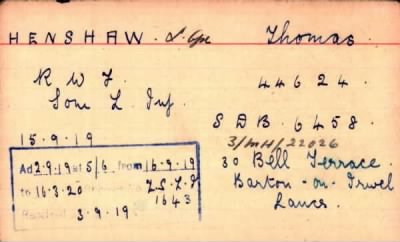 HENSHAW. L. Cpl Thomas.
R W F. 44624.
Som L. Inf.
S D B. 6458.
15.9.19 3/MH/22026
Ad 2.9.19 at 5/6 from 16.9.19 30 Bell Terrace.
to 16.3.20 Z.S.L.I Barton-on-Irwel
1643 Lancs.
3.9.19.